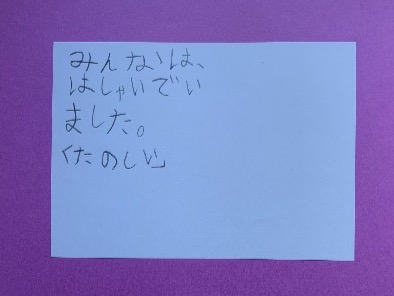 みんなは、
はしゃいでい
ました。
「たのしい」